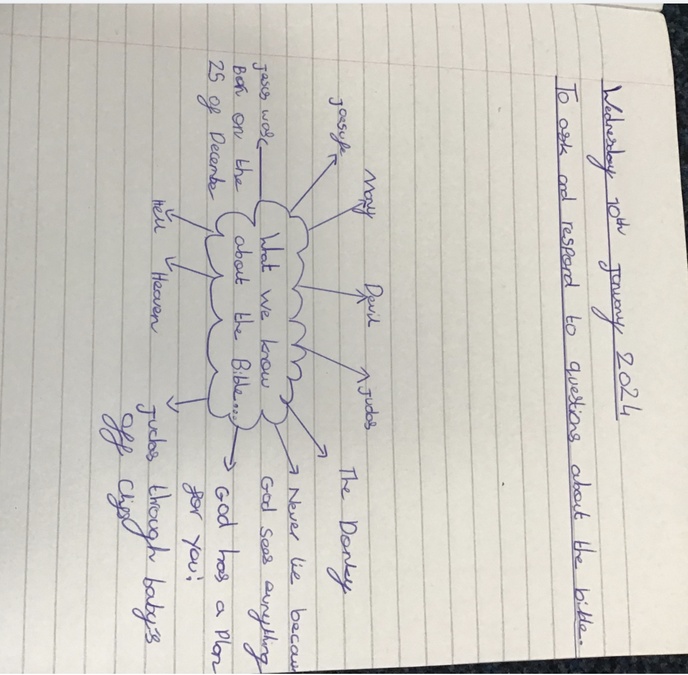 Wednesday 10th January 2024
To ask and respond to questions about the bible.
Mary
Devil
Judas
The Donkey
Never lie becaus
God sees evrything
God has a Plan
for you!
Judas through baby's
off
Heaven
Hell
Born on the
25 of December
What we know
about the Bible...